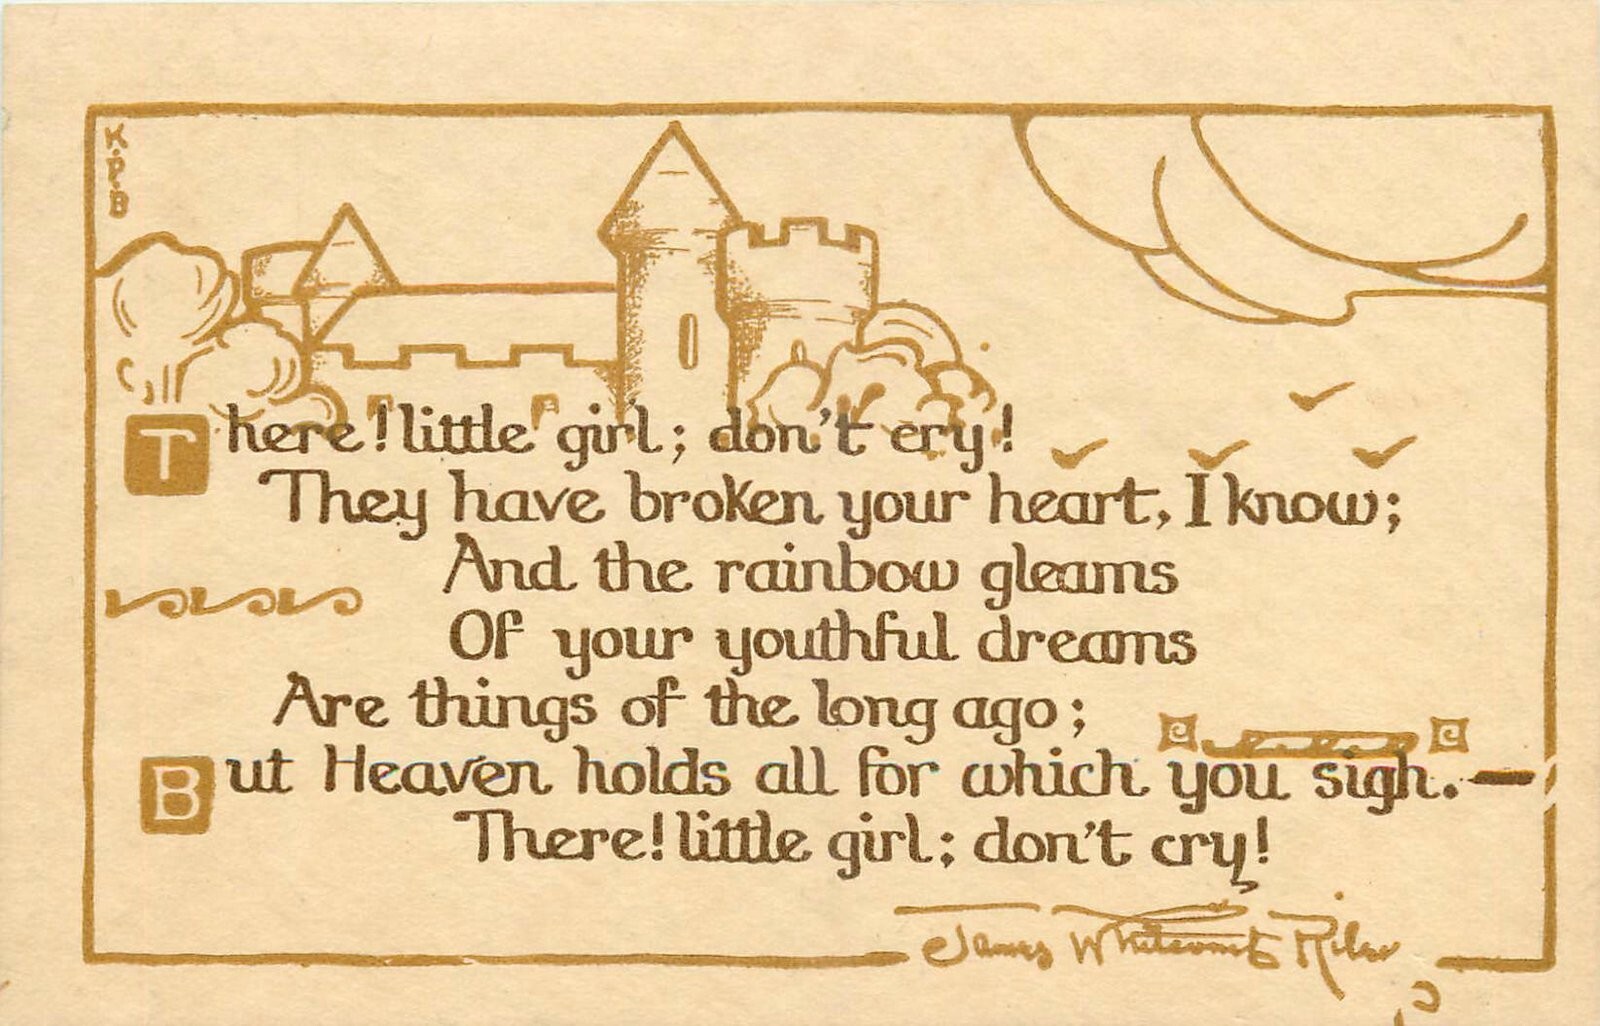 K.P.B
There! little girl; don't cry!
They have broken your heart, I know;
And the rainbow gleams
Of your youthful dreams
Are things of the long ago;
But Heaven holds all for which you sigh.—
There! little girl; don't cry!
James Whitcomb Riley